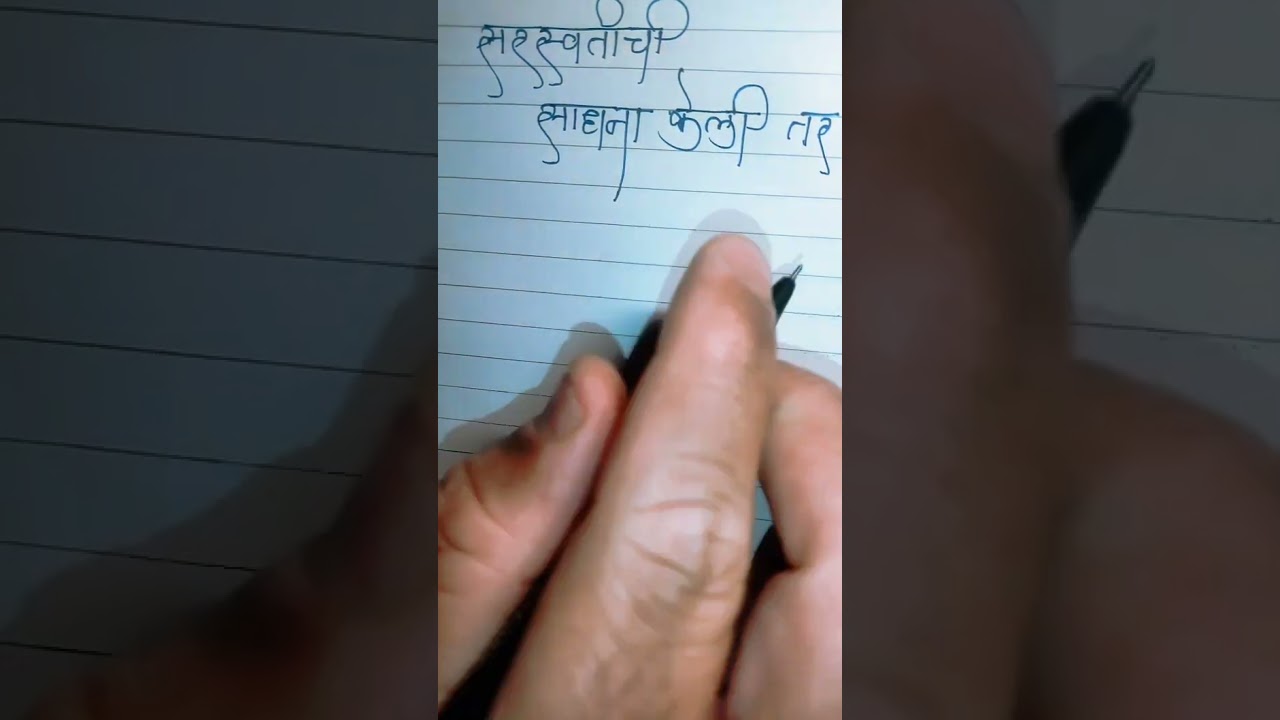 सरस्वतीची
साधना केली तर